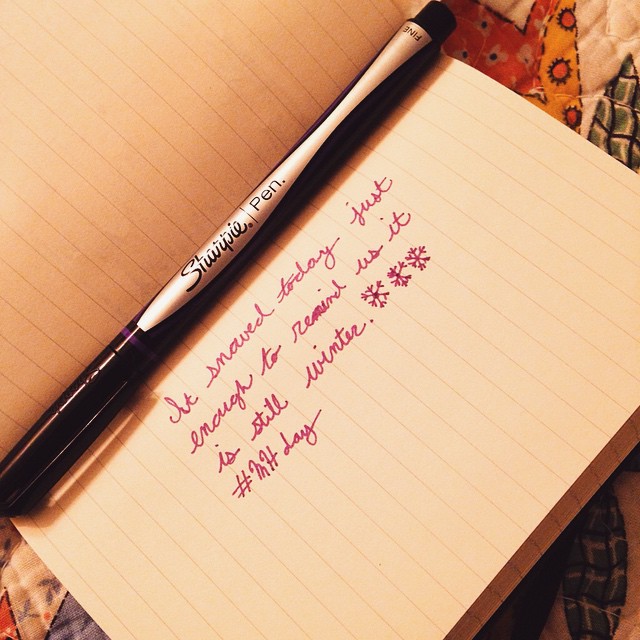 FINE
Sharpie. Pen.
It snowed today just
enough to remind us it
is still winter. ❄❄❄
#MHday